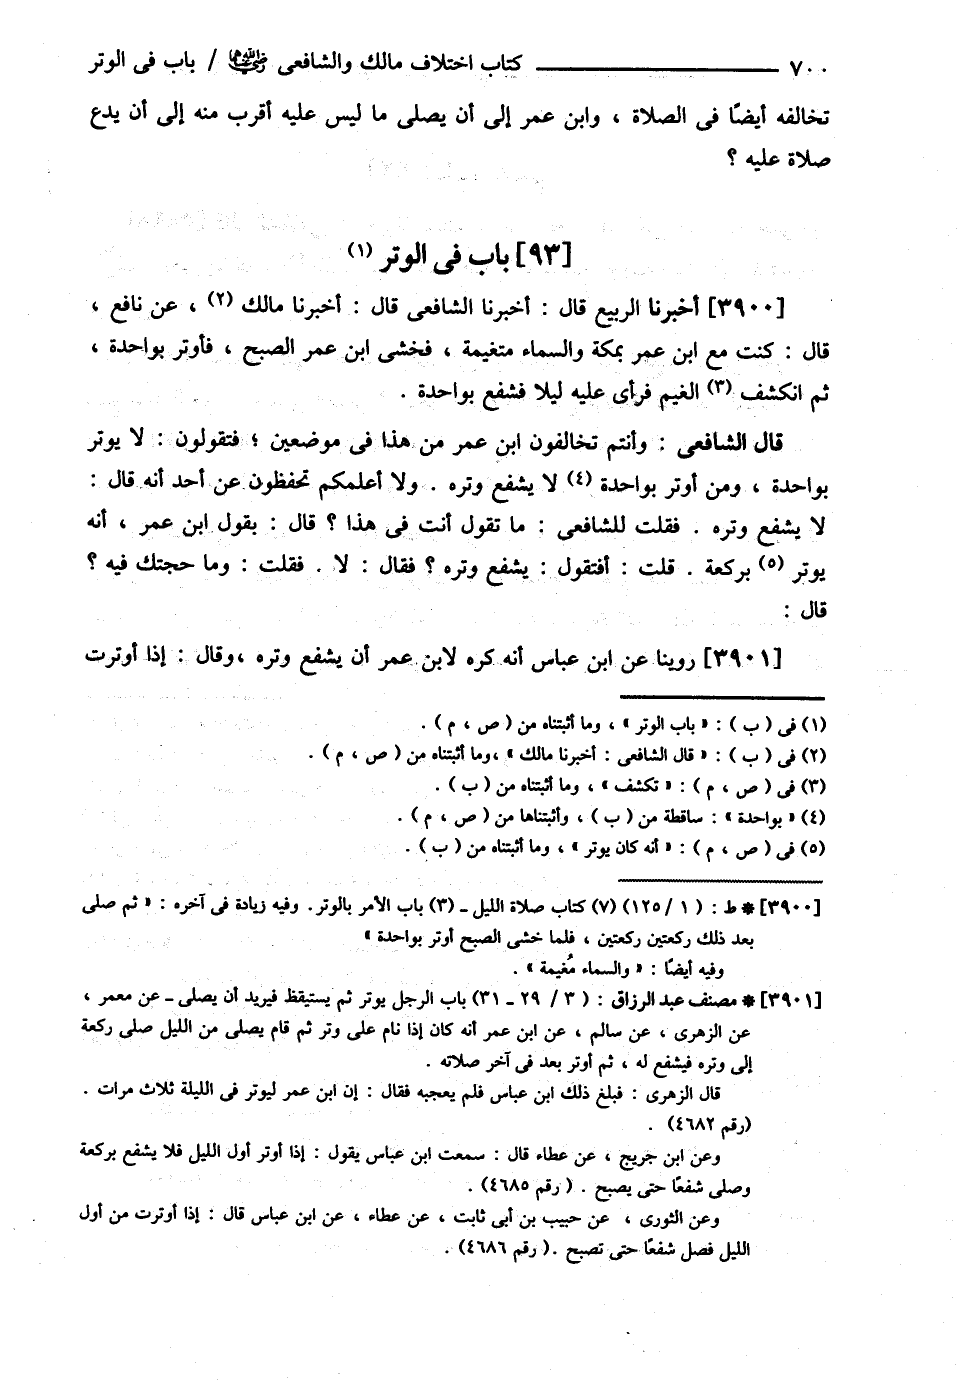 ٧٠٠ ــــــــــــــــ كتاب اختلاف مالك والشافعى رضي الله عنهما / باب فى الوتر
تخالفه أيضًا فى الصلاة ، وابن عمر إلى أن يصلى ما ليس عليه أقرب منه إلى أن يدع
صلاة عليه ؟
[٩٣] باب فى الوتر (١)
[٣٩٠٠] أخبرنا الربيع قال : أخبرنا الشافعى قال : أخبرنا مالك (٢) ، عن نافع ،
قال : كنت مع ابن عمر بمكة والسماء متغيمة ، فخشى ابن عمر الصبح ، فأوتر بواحدة ،
ثم انكشف (٣) الغيم فرأى عليه ليلا فشفع بواحدة .
قال الشافعى : وأنتم تخالفون ابن عمر من هذا فى موضعين ؛ فتقولون : لا يوتر
بواحدة ، ومن أوتر بواحدة (٤) لا يشفع وتره . ولا أعلمكم تحفظون عن أحد أنه قال :
لا يشفع وتره . فقلت للشافعى : ما تقول أنت فى هذا ؟ قال : بقول ابن عمر ، أنه
يوتر (٥) بركعة . قلت : أفتقول : يشفع وتره ؟ فقال : لا . فقلت : وما حجتك فيه ؟
قال :
[٣٩٠١] روينا عن ابن عباس أنه كره لابن عمر أن يشفع وتره ،وقال : إذا أوترت
(١) فى ( ب ) : « باب الوتر » ، وما أثبتناه من ( ص ، م ) .
(٢) فى ( ب ) : « قال الشافعى : أخبرنا مالك » ،وما أثبتناه من ( ص ، م ) .
(٣) فى ( ص ، م ) : « تكشف » ، وما أثبتناه من ( ب ) .
(٤) « بواحدة » : ساقطة من ( ب ) ، وأثبتناها من ( ص ، م ) .
(٥) فى ( ص ، م ) : « أنه كان يوتر » ، وما أثبتناه من ( ب ) .
[٣٩٠٠] * ط : ( ١ / ١٢٥) (٧) كتاب صلاة الليل ـ (٣) باب الأمر بالوتر. وفيه زيادة فى آخره : « ثم صلى
بعد ذلك ركعتين ركعتين ، فلما خشى الصبح أوتر بواحدة »
وفيه أيضًا : « والسماء مُغيمة » .
[٣٩٠١] * مصنف عبد الرزاق : ( ٣ / ٢٩ ـ ٣١) باب الرجل يوتر ثم يستيقظ فيريد أن يصلى ـ عن معمر ،
عن الزهرى ، عن سالم ، عن ابن عمر أنه كان إذا نام على وتر ثم قام يصلى من الليل صلى ركعة
إلى وتره فيشفع له ، ثم أوتر بعد فى آخر صلاته .
قال الزهرى : فبلغ ذلك ابن عباس فلم يعجبه فقال : إن ابن عمر ليوتر فى الليلة ثلاث مرات .
(رقم ٤٦٨٢) .
وعن ابن جريج ، عن عطاء قال : سمعت ابن عباس يقول : إذا أوتر أول الليل فلا يشفع بركعة
وصلى شفعًا حتى يصبح . ( رقم ٤٦٨٥) .
وعن الثورى ، عن حبيب بن أبى ثابت ، عن عطاء ، عن ابن عباس قال : إذا أوترت من أول
الليل فصل شفعًا حتى تصبح .( رقم ٤٦٨٦) .